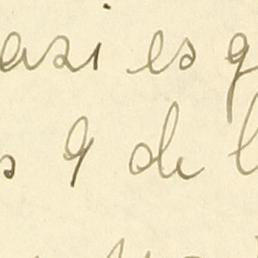 asi es q
s 9 de l